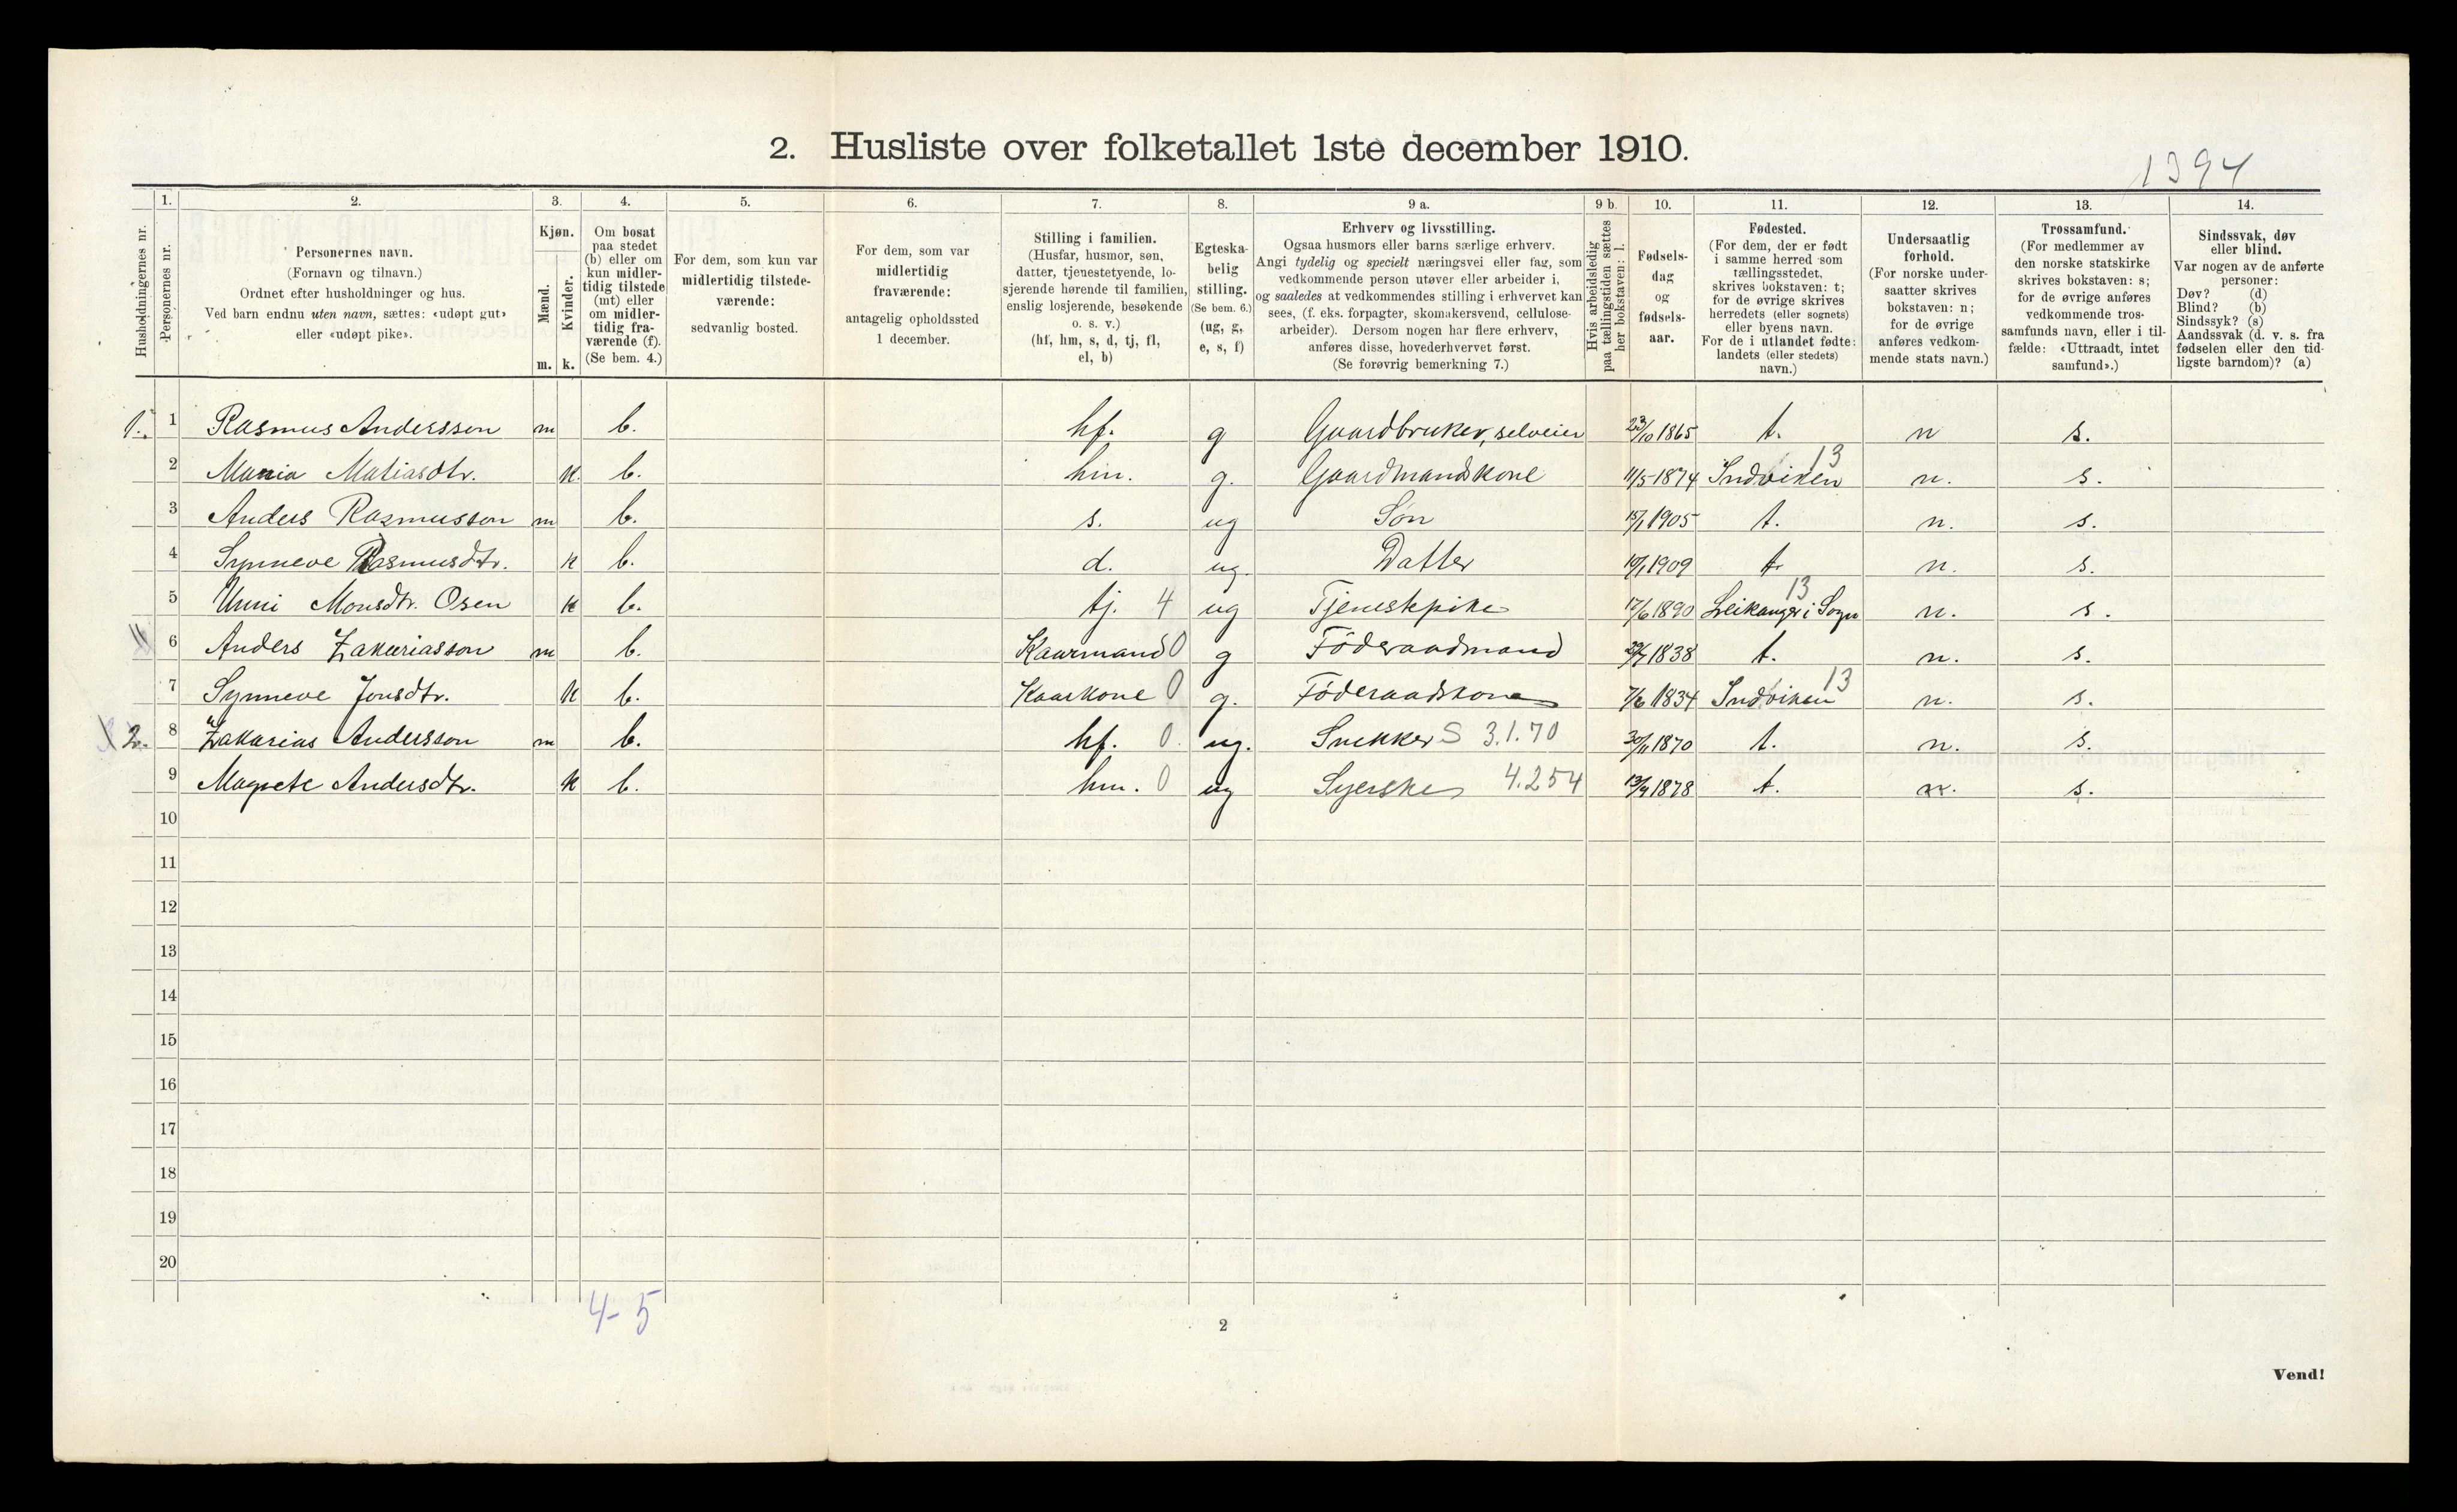 2. Husliste over folketallet 1ste december 1910.
1394
Husholdningernes nr.
1. Personernes nr.
2. Personernes navn.
(Fornavn og tilnavn.)
Ordnet efter husholdninger og hus.
Ved barn endnu uten navn, sættes: «udøpt gut»
eller «udøpt pike».
3. Kjøn.
Mænd. m.
Kvinder. k.
4. Om bosat
paa stedet
(b) eller om
kun midler-
tidig tilstede
(mt) eller
om midler-
tidig fra-
værende (f).
(Se bem. 4.)
5. For dem, som kun var
midlertidig tilstede-
værende:
sedvanlig bosted.
6. For dem, som var
midlertidig
fraværende:
antagelig opholdssted
1 december.
7. Stilling i familien.
(Husfar, husmor, søn,
datter, tjenestetyende, lo-
sjerende hørende til familien,
enslig losjerende, besøkende
o. s. v.)
(hf, hm, s, d, tj, fl,
el, b)
8. Egteska-
belig
stilling.
(Se bem. 6.)
(ug, g,
e, s, f)
9 a. Erhverv og livsstilling.
Ogsaa husmors eller barns særlige erhverv.
Angi tydelig og specielt næringsvei eller fag, som
vedkommende person utøver eller arbeider i,
og saaledes at vedkommendes stilling i erhvervet kan
sees, (f. eks. forpagter, skomakersvend, cellulose-
arbeider). Dersom nogen har flere erhverv,
anføres disse, hovederhvervet først.
(Se forøvrig bemerkning 7.)
9 b. Hvis arbeidsledig
paa tællingstiden sættes
her bokstaven: l.
10. Fødsels-
dag
og
fødsels-
aar.
11. Fødested.
(For dem, der er født
i samme herred som
tællingsstedet,
skrives bokstaven: t;
for de øvrige skrives
herredets (eller sognets)
eller byens navn.
For de i utlandet fødte:
landets (eller stedets)
navn.)
12. Undersaatlig
forhold.
(For norske under-
saatter skrives
bokstaven: n;
for de øvrige
anføres vedkom-
mende stats navn.)
13. Trossamfund.
(For medlemmer av
den norske statskirke
skrives bokstaven: s;
for de øvrige anføres
vedkommende tros-
samfunds navn, eller i til-
fælde: «Uttraadt, intet
samfund».)
14. Sindssvak, døv
eller blind.
Var nogen av de anførte
personer:
Døv? (d)
Blind? (b)
Sindssyk? (s)
Aandssvak (d. v. s. fra
fødselen eller den tid-
ligste barndom)? (a)
1. 1 Rasmus Andersson m b. hf. g Gaardbruker, selveier 23/10 1865 t. n s.
2 Maria Matiasdtr. k b. hm. g. Gaardmandskone 11/5-1874 Indviken 13 n. s.
3 Anders Rasmusson m b. s. ug Søn 15/1 1905 t. n. s.
4 Synneve Rasmusdtr. k b. d. ug. Datter 1909 t. n. s.
5 Unni Monsdtr. Osen k b. tj. 4 ug Tjenestepike 17/6 1890 Leikanger i Sogn 13 n. s.
6 Anders Zakariasson m b. Kaarmand 0 g Föderaadmand 1838 t. n. s.
7 Synneve Jonsdtr. k b. Kaarkone 0 g. Föderaadskone 7/6 1834 Indviken 13 n. s.
2. 8 Zakarias Andersson m b. hf. 0 ug. Snekker S 3.1.70 30/11 1870 t. n. s.
9 Magrete Andersdtr. k b. hm. 0 ug Syerske 4.254 13/9 1878 t. n. s.
10
11
12
13
14
15
16
17
18
19
20
4-5
2
Vend!